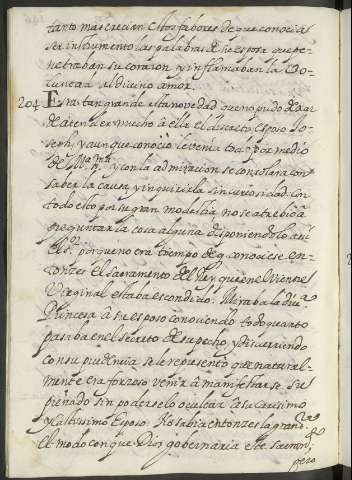 tanto mas crecian estos fabores de que conocia
ser instrumento las palabras de su esposa que pe-
netraban su corazon y inflamaban la Vo-
luntad al divino amor.
204 Era tan grande esta novedad que no pudo dexar
de atender mucho à ella el discreto esposo Jo-
seph, y aunque conocio le venia todo por medio
de Mª Sma y con la admiracion se consolara con
saber la causa, y inquirirla sin curiosidad con
todo esto por su gran modestia no se atrebio à
preguntarla cosa alguna disponiendolo asi
El Sr. porque no era tiempo de q conociese en-
tonzes El Sacramento del Rey que en el Vientre
Virginal estaba escondido: Miraba la diva.
Princesa à su esposo conociendo todo quanto
pasaba en el secreto de su pecho, y discurriendo
con su prudencia se le represento que natural-
mente era forzoso venir à manifestarse su
preñado sin poderselo ocultar à su carisimo
y castissimo Esposo: No sabia entonzes la gran Ra.
El modo con que Dios gobernaria este sacramto
pero